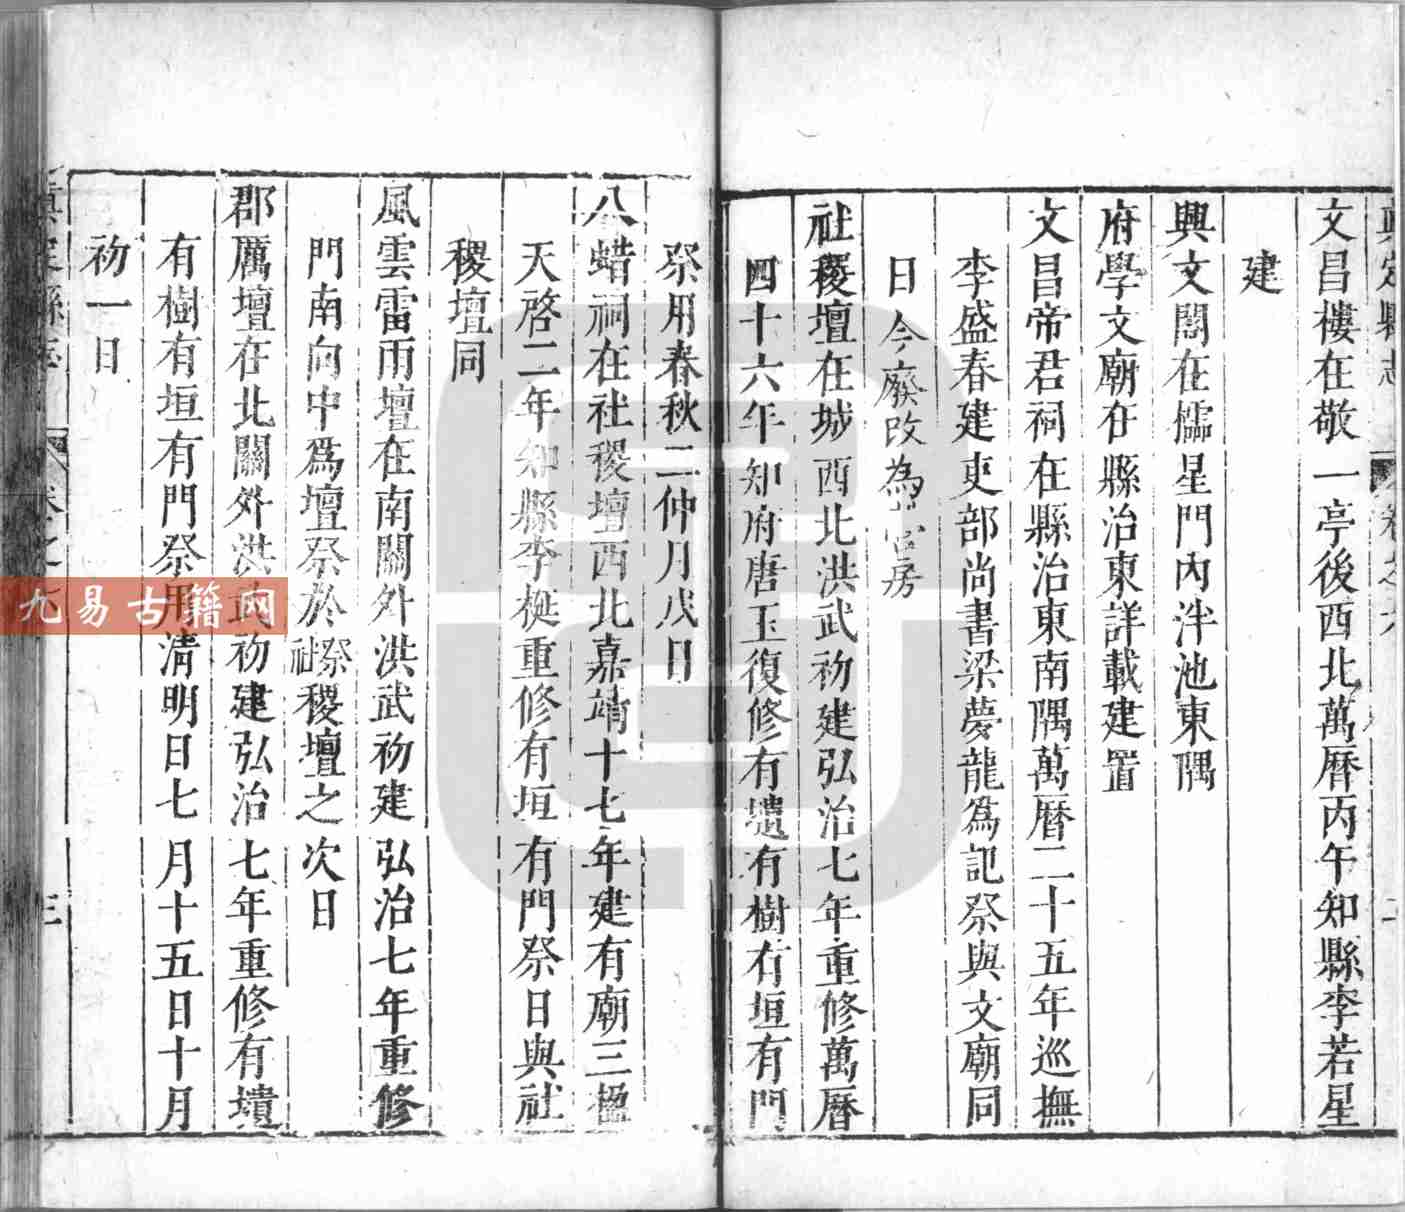 真定縣志
卷之六
二
文昌樓在敬一亭後西北萬曆丙午知縣李若星
建
興文閣在櫺星門內泮池東隅
府學文廟在縣治東詳載建置
文昌帝君祠在縣治東南隅萬曆二十五年巡撫
李盛春建吏部尚書梁夢龍為記祭與文廟同
日今廢改為官房
社稷壇在城西北洪武初建弘治七年重修萬曆
四十六年知府唐玉復修有壝有樹有垣有門
祭用春秋二仲月戊日
八蜡祠在社稷壇西北嘉靖十七年建有廟三楹
天啓二年知縣李梴重修有垣有門祭日與社
稷壇同
風雲雷雨壇在南關外洪武初建弘治七年重修
門南向中爲壇祭於祭社稷壇之次日
郡厲壇在北關外洪武初建弘治七年重修有壝
有樹有垣有門祭用清明日七月十五日十月
初一日
真定縣志
卷之六
三
九易古籍网